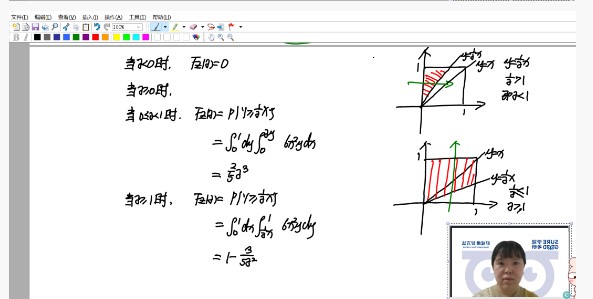 文件(F) 编辑(E) 查看(V) 插入(I) 操作(A) 工具(T) 帮助(H)
当z<0时, F_Z(z)=0
当z≥0时,
当0≤z<1时, F_Z(z)= P{Y≥1/z X}
= ∫_0^1 dy ∫_0^{zy} 6x²y dx
= 2/5 z³
当z≥1时, F_Z(z)= P{Y≥1/z X}
= ∫_0^1 dx ∫_{1/z x}^1 6x²y dy
= 1- 3/5z²
y=1/z x
y=x
1/z>1
即z<1
1
1
y=x
y=1/z x
1/z≤1
z≥1
1
1